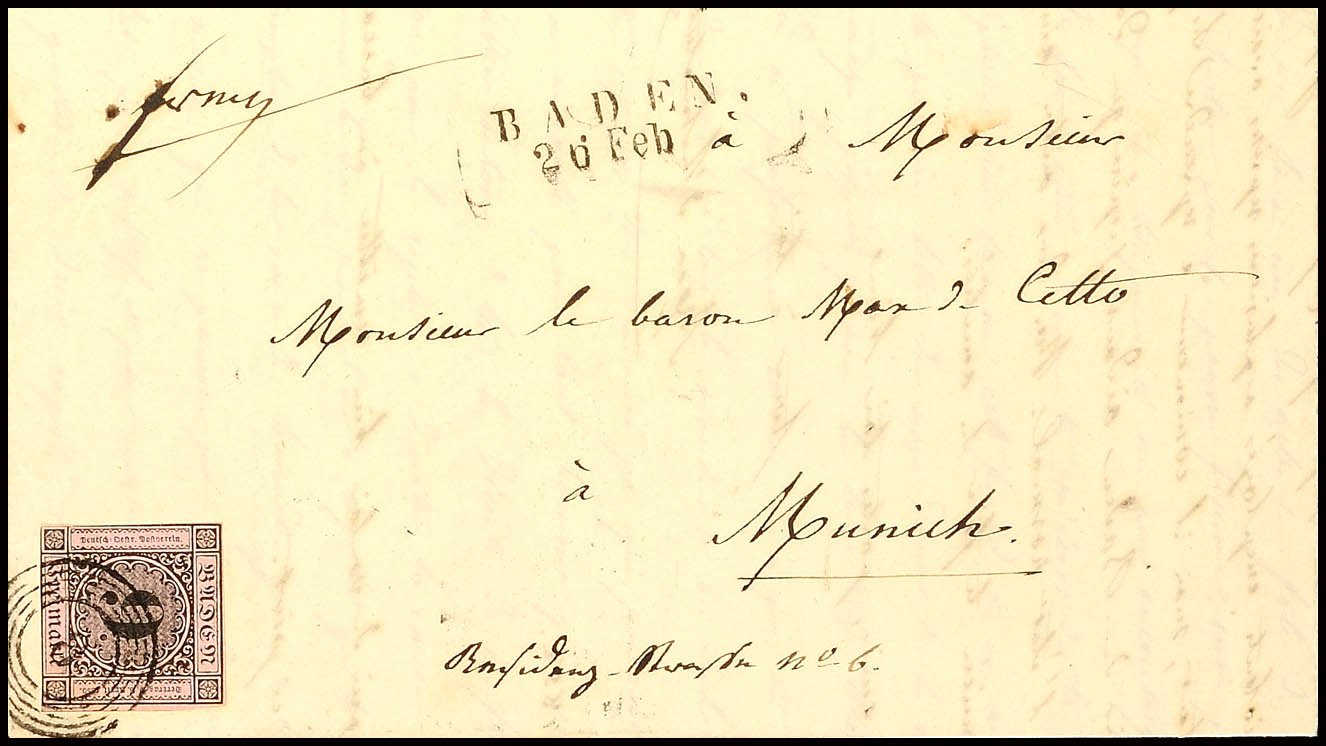 franco
BADEN.
26 Feb
à Monsieur
Monsieur le baron Max de Cetto
à
Munich.
Residenz-Strasse No 6.
Deutsch-Oestr. Postverein.
BADEN
9
Freimarke
Vertrag v. 6. April 1850.